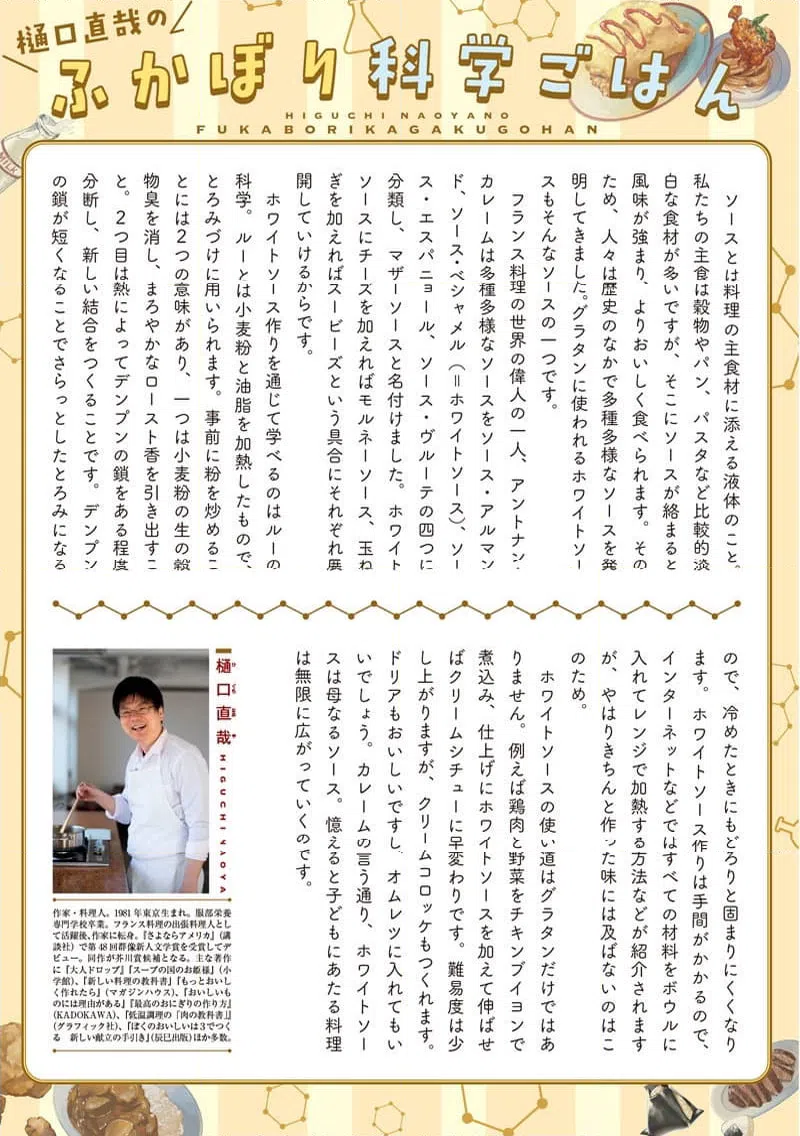 樋口直哉の
ふかぼり科学ごはん
HIGUCHI NAOYANO
FUKABORIKAGAKUGOHAN
MILK
ソースとは料理の主食材に添える液体のこと。
私たちの主食は穀物やパン、パスタなど比較的淡
白な食材が多いですが、そこにソースが絡まると
風味が強まり、よりおいしく食べられます。その
ため、人々は歴史のなかで多種多様なソースを発
明してきました。グラタンに使われるホワイトソー
スもそんなソースの一つです。
フランス料理の世界の偉人の一人、アントナン・
カレームは多種多様なソースをソース・アルマン
ド、ソース・ベシャメル（＝ホワイトソース）、ソー
ス・エスパニョール、ソース・ヴルーテの四つに
分類し、マザーソースと名付けました。ホワイト
ソースにチーズを加えればモルネーソース、玉ね
ぎを加えればスービーズという具合にそれぞれ展
開していけるからです。
ホワイトソース作りを通じて学べるのはルーの
科学。ルーとは小麦粉と油脂を加熱したもので、
とろみづけに用いられます。事前に粉を炒めるこ
とには２つの意味があり、一つは小麦粉の生の穀
物臭を消し、まろやかなロースト香を引き出すこ
と。２つ目は熱によってデンプンの鎖をある程度
分断し、新しい結合をつくることです。デンプン
の鎖が短くなることでさらっとしたとろみになる
ので、冷めたときにもどろりと固まりにくくなり
ます。ホワイトソース作りは手間がかかるので、
インターネットなどではすべての材料をボウルに
入れてレンジで加熱する方法などが紹介されます
が、やはりきちんと作った味には及ばないのはこ
のため。
ホワイトソースの使い道はグラタンだけではあ
りません。例えば鶏肉と野菜をチキンブイヨンで
煮込み、仕上げにホワイトソースを加えて伸ばせ
ばクリームシチューに早変わりです。難易度は少
し上がりますが、クリームコロッケもつくれます。
ドリアもおいしいですし、オムレツに入れてもい
いでしょう。カレームの言う通り、ホワイトソー
スは母なるソース。憶えると子どもにあたる料理
は無限に広がっていくのです。
樋口直哉 HIGUCHI NAOYA
作家・料理人。1981年東京生まれ。服部栄養
専門学校卒業。フランス料理の出張料理人とし
て活躍後、作家に転身。『さよならアメリカ』（講
談社）で第48回群像新人文学賞を受賞してデ
ビュー。同作が芥川賞候補となる。主な著作
に『大人ドロップ』『スープの国のお姫様』（小
学館）、『新しい料理の教科書』『もっとおいし
く作れたら』（マガジンハウス）、『おいしいも
のには理由がある』『最高のおにぎりの作り方』
(KADOKAWA)、『低温調理の「肉の教科書」』
（グラフィック社）、『ぼくのおいしいは３でつく
る　新しい献立の手引き』（辰巳出版）ほか多数。